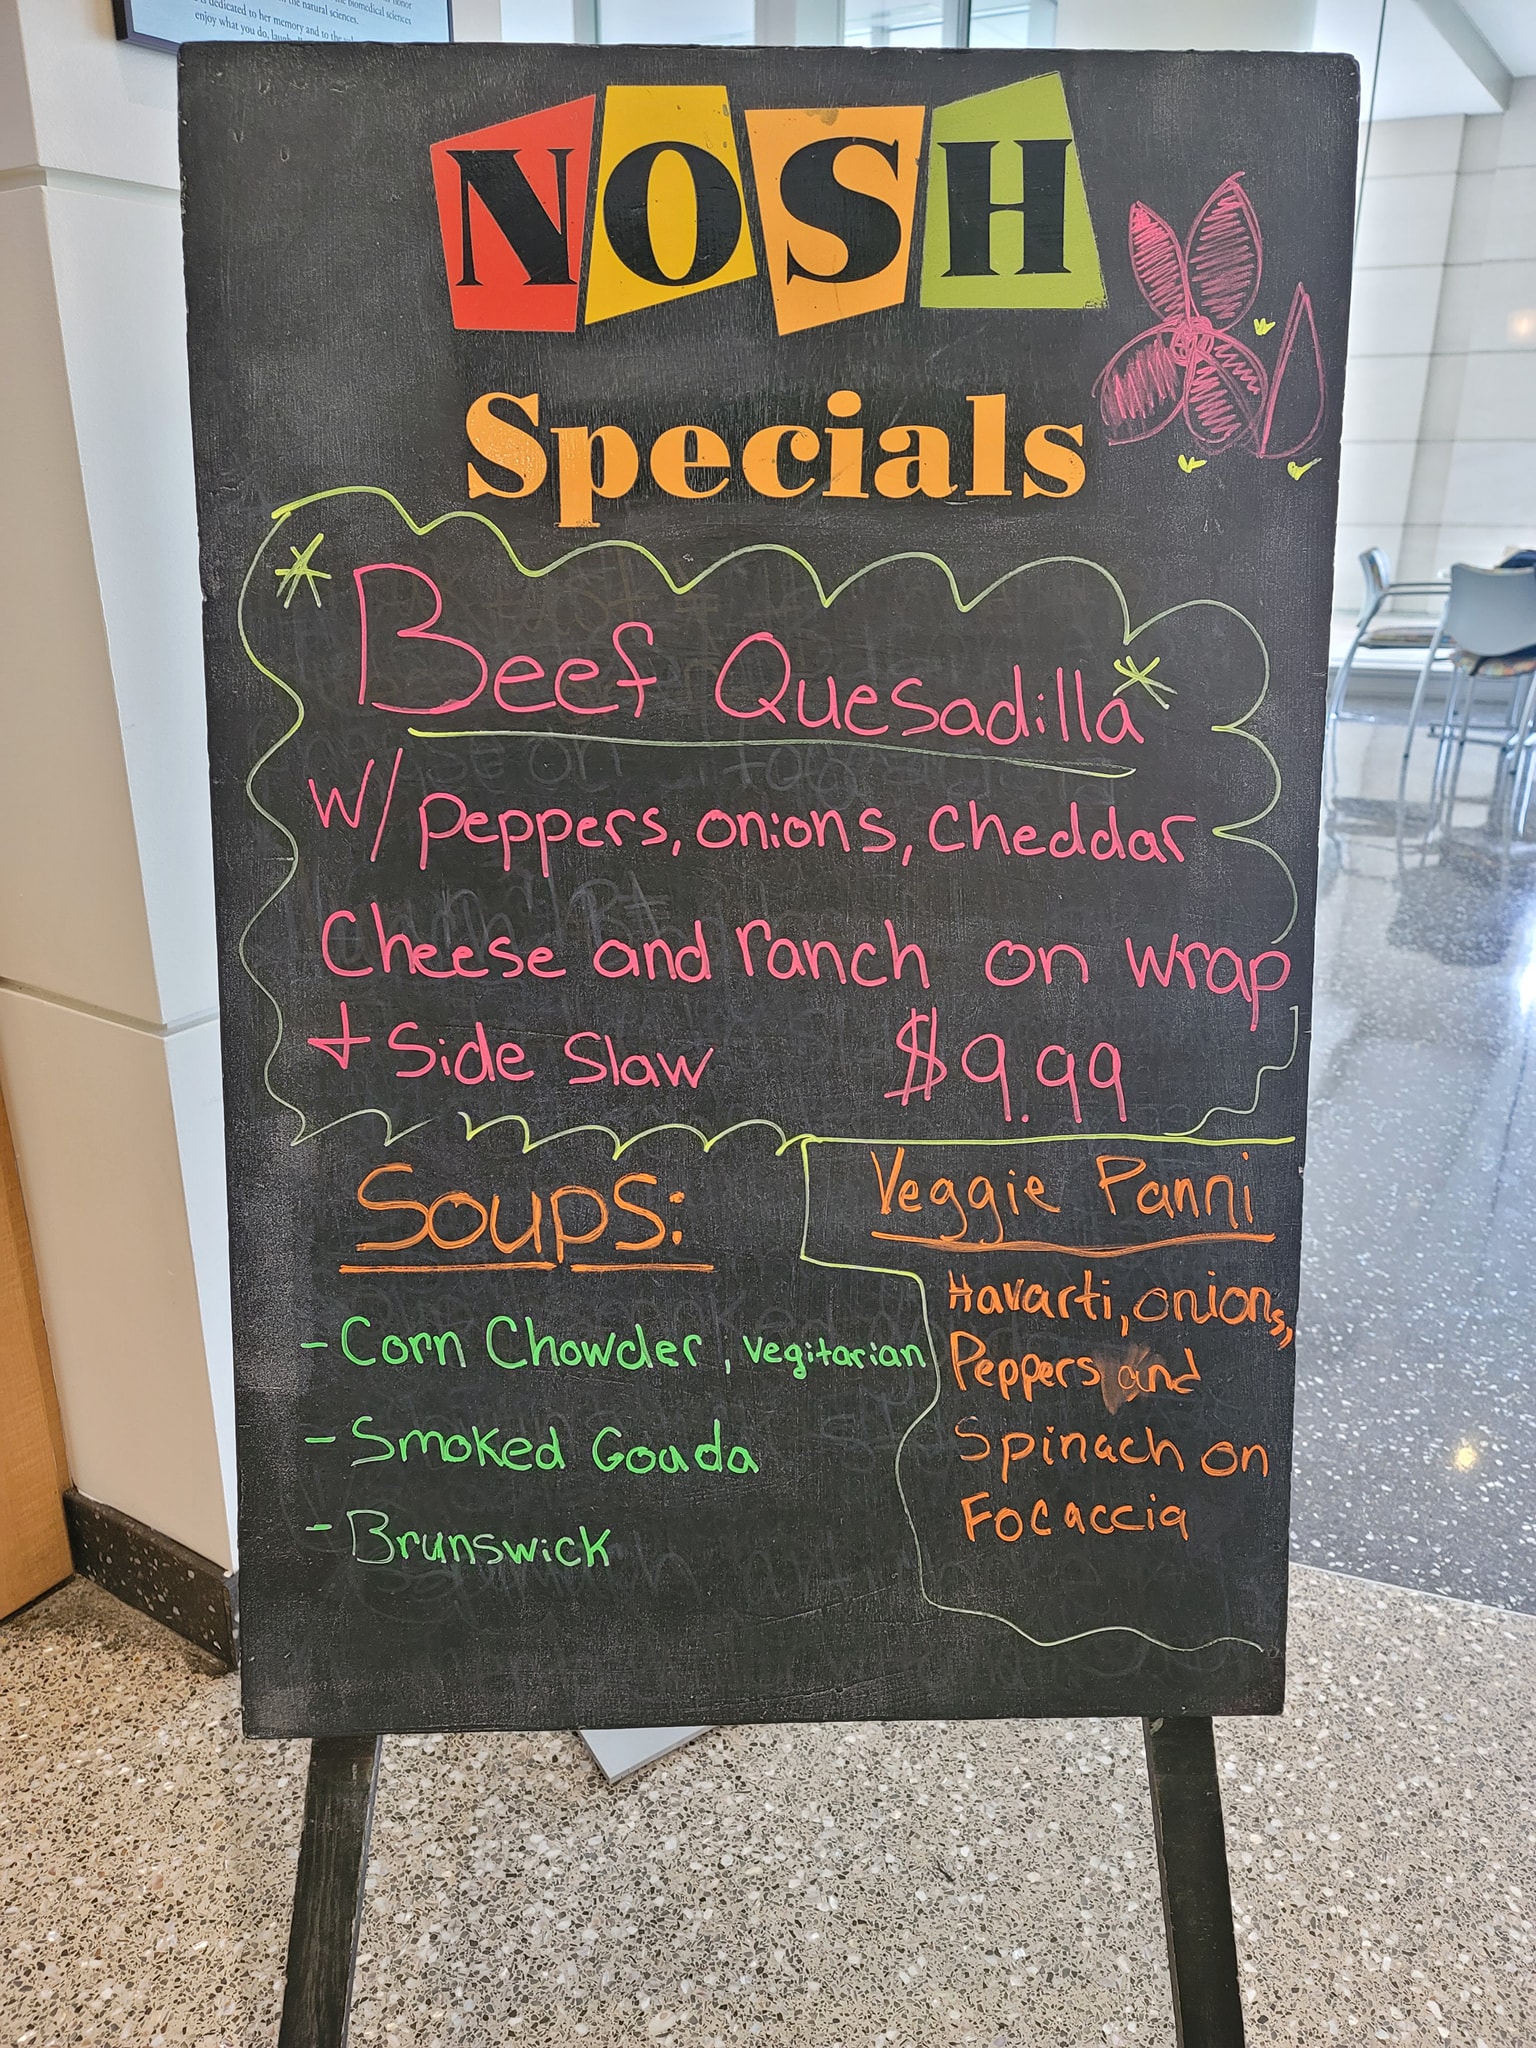 honor
the biomedical sciences
the natural sciences.
is dedicated to her memory and to the
enjoy what you do,
NOSH
Specials
Beef Quesadilla
W/ Peppers, onions, cheddar
Cheese and ranch on wrap
+ Side Slaw $9.99
Soups:
- Corn Chowder, vegitarian
- Smoked Gouda
- Brunswick
Veggie Panni
Havarti, onions,
Peppers and
Spinach on
Focaccia